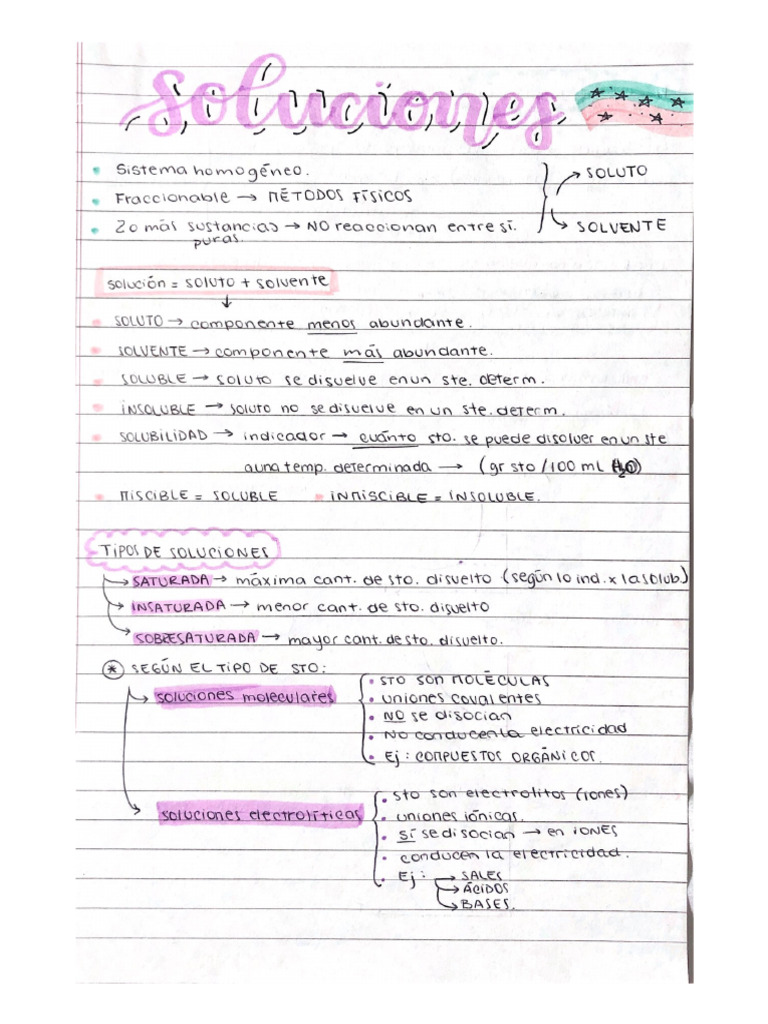 Soluciones
• Sistema homogéneo.
• Fraccionable → MÉTODOS FÍSICOS
• 2 o más sustancias → NO reaccionan entre sí.
puras.
→ SOLUTO
→ SOLVENTE
solución = soluto + solvente
↓
• SOLUTO → componente menos abundante.
• SOLVENTE → componente más abundante.
• SOLUBLE → soluto se disuelve en un ste. determ.
• INSOLUBLE → soluto no se disuelve en un ste. determ.
• SOLUBILIDAD → indicador → cuánto sto. se puede disolver en un ste
a una temp. determinada → (gr sto / 100 mL H2O)
• MISCIBLE = SOLUBLE • INMISCIBLE = INSOLUBLE.
TIPOS DE SOLUCIONES
→ SATURADA → máxima cant. de sto. disuelto (según lo ind. x la solub.)
→ INSATURADA → menor cant. de sto. disuelto
→ SOBRESATURADA → mayor cant. de sto. disuelto.
* SEGÚN EL TIPO DE STO:
→ soluciones moleculares
• STO SON MOLÉCULAS
• uniones covalentes
• NO se disocian
• NO conducen la electricidad
• Ej: COMPUESTOS ORGÁNICOS.
→ soluciones electrolíticas
• sto son electrolitos (iones)
• uniones iónicas.
• SÍ se disocian → en IONES
• conducen la electricidad.
• Ej: → SALES
→ ÁCIDOS
→ BASES.